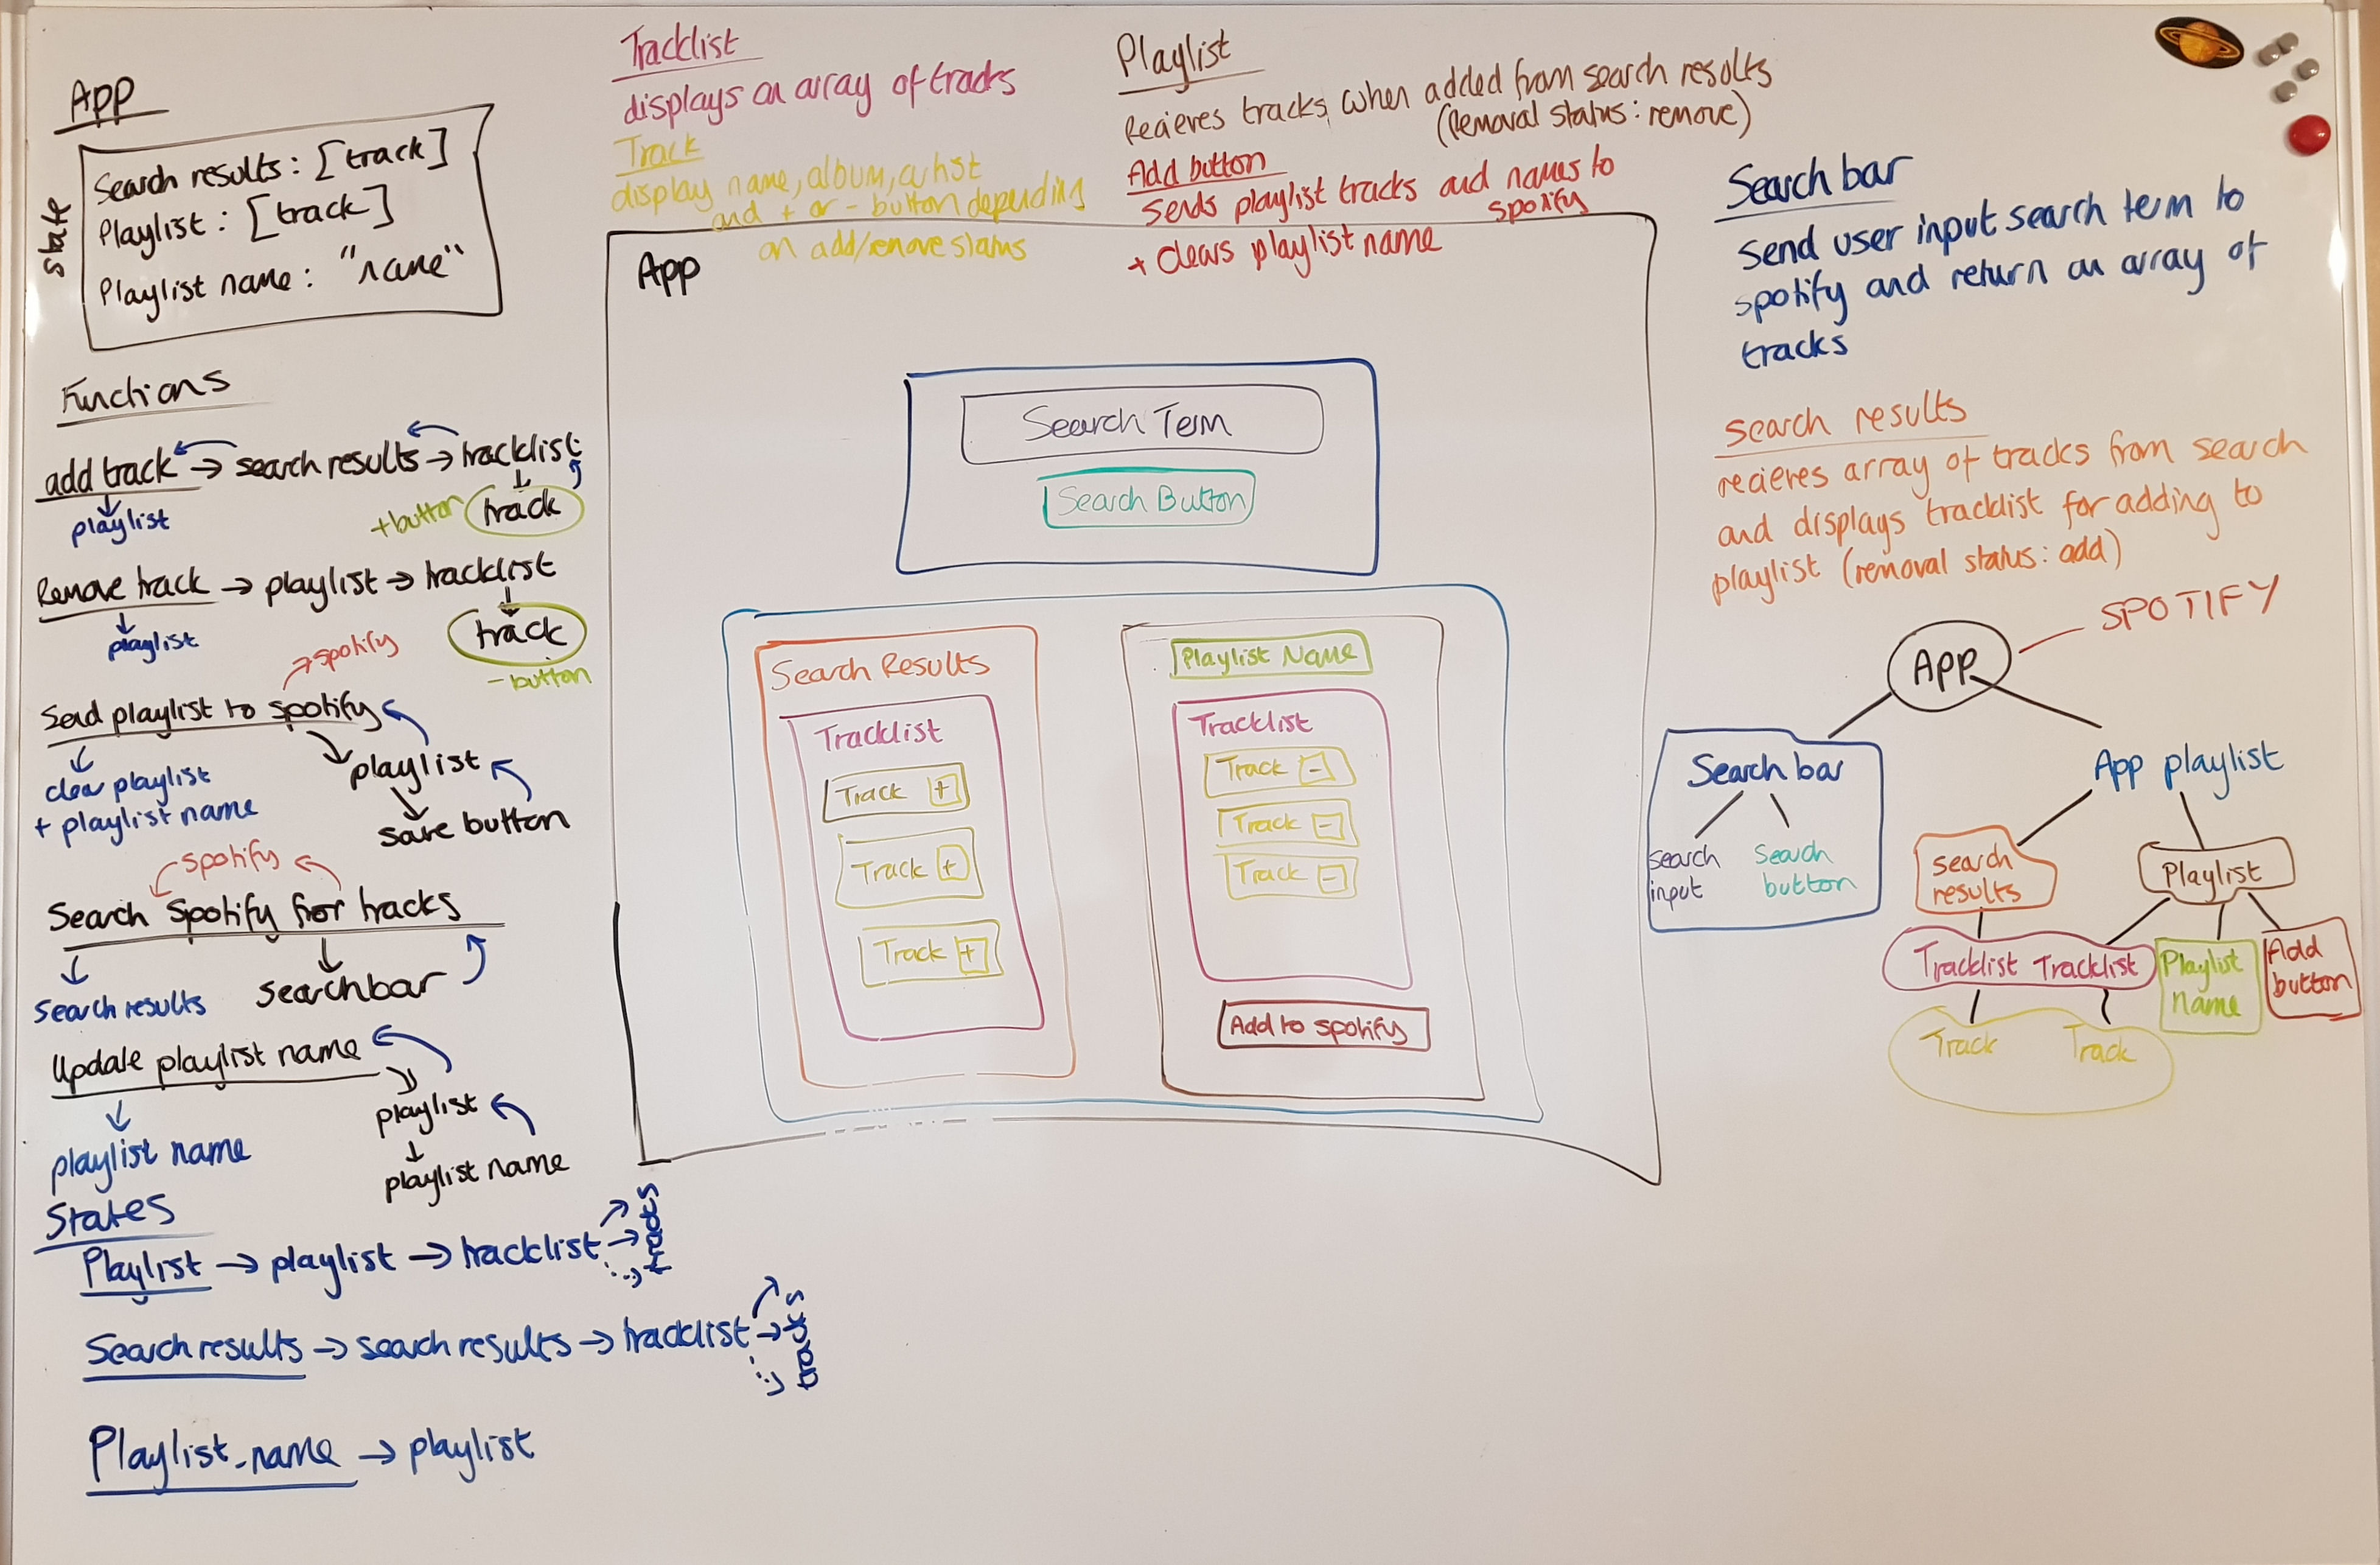 App
state
Search results: [track]
Playlist: [track]
Playlist name: "name"
Functions
add track → search results → tracklist
playlist
+button
track
Remove track → playlist → tracklist
playlist
track
- button
→ spotify
Send playlist to spotify
clear playlist
+ playlist name
playlist
save button
spotify
Search Spotify for tracks
Search results
searchbar
Update playlist name
playlist name
playlist
playlist name
States
Playlist → playlist → tracklist → tracks
Search results → search results → tracklist → tracks
Playlist_name → playlist
Tracklist
displays an array of tracks
Track
display name, album, artist
and + or - button depending
on add/remove status
Playlist
Recieves tracks, when added from search results
(Removal status: remove)
Add button
Sends playlist tracks and names to
spotify
+ clears playlist name
App
Search Term
Search Button
Search Results
Tracklist
Track +
Track +
Track +
Playlist Name
Tracklist
Track -
Track -
Track -
Add to spotify
Search bar
Send user input search term to
spotify and return an array of
tracks
Search results
recieves array of tracks from search
and displays tracklist for adding to
playlist (removal status: add)
SPOTIFY
App
Search bar
search
input
Search
button
App playlist
search
results
Playlist
Tracklist Tracklist
Playlist
name
Add
button
Track Track